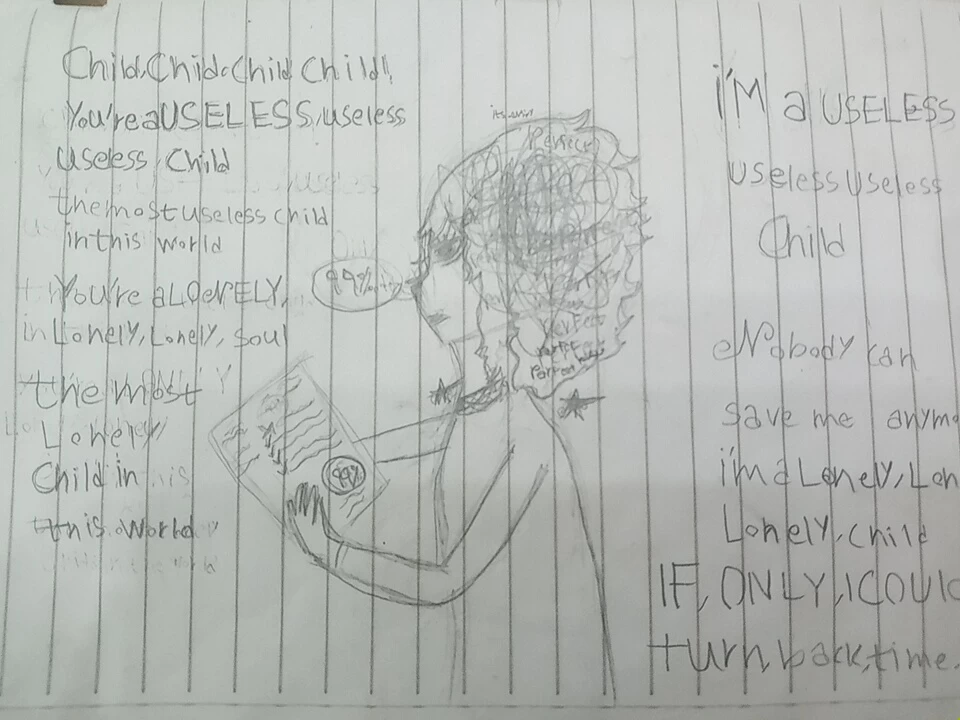 Child, Child, Child Child!
You're a USELESS, useless
useless, child
the most useless child
in this world
You're a LONELY,
Lonely, Lonely, soul
the most
Lonely
Child in
this world
99%
99%
Perfect
Perfect
I'M a USELESS
useless useless
Child
Nobody can
save me anymo
i'm a Lonely, Lon
Lonely, child
IF, ONLY, I COULD
turn, back, time.